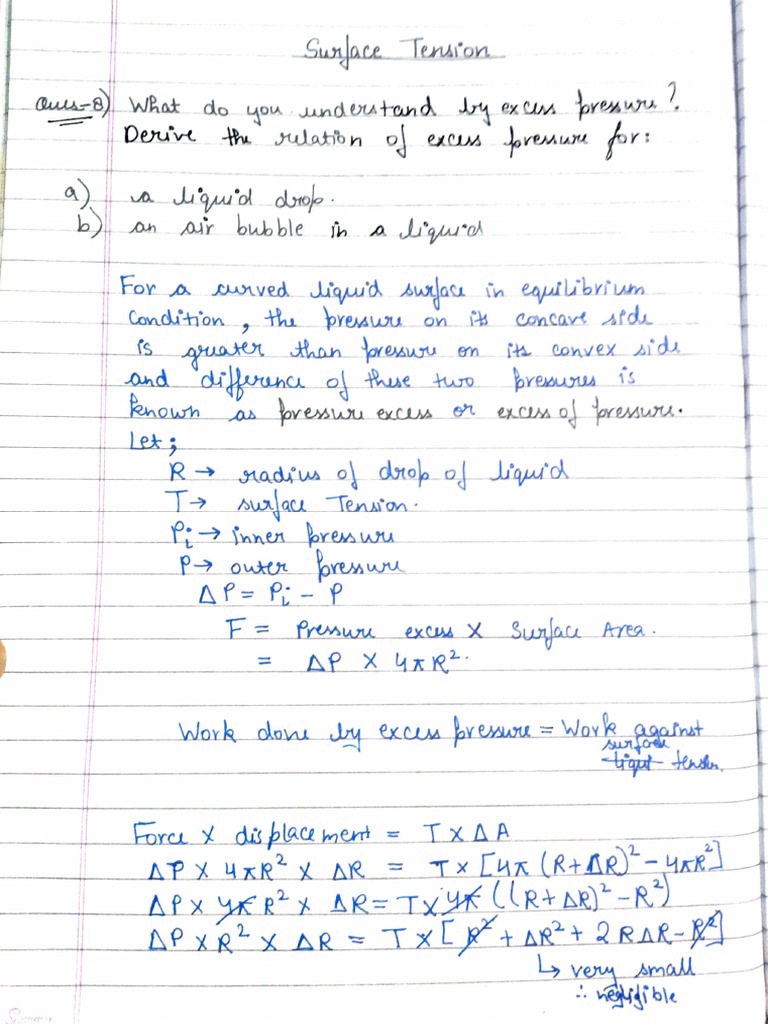 Surface Tension
Ques-8) What do you understand by excess pressure?
Derive the relation of excess pressure for:
a) a liquid drop.
b) an air bubble in a liquid
For a curved liquid surface in equilibrium
condition, the pressure on its concave side
is greater than pressure on its convex side
and difference of these two pressures is
known as pressure excess or excess of pressure.
Let;
R → radius of drop of liquid
T → surface Tension.
Pi → inner pressure
P → outer pressure
ΔP = Pi - P
F = Pressure excess X Surface Area.
= ΔP X 4πR².
Work done by excess pressure = Work against
surface
tension.
Force X displacement = T X ΔA
ΔP X 4πR² X ΔR = T X [4π (R+ΔR)² - 4πR²]
ΔP X 4π R² X ΔR = T X 4π ((R+ΔR)² - R²)
ΔP X R² X ΔR = T X [R² + ΔR² + 2RΔR - R²]
↳ very small
∴ negligible